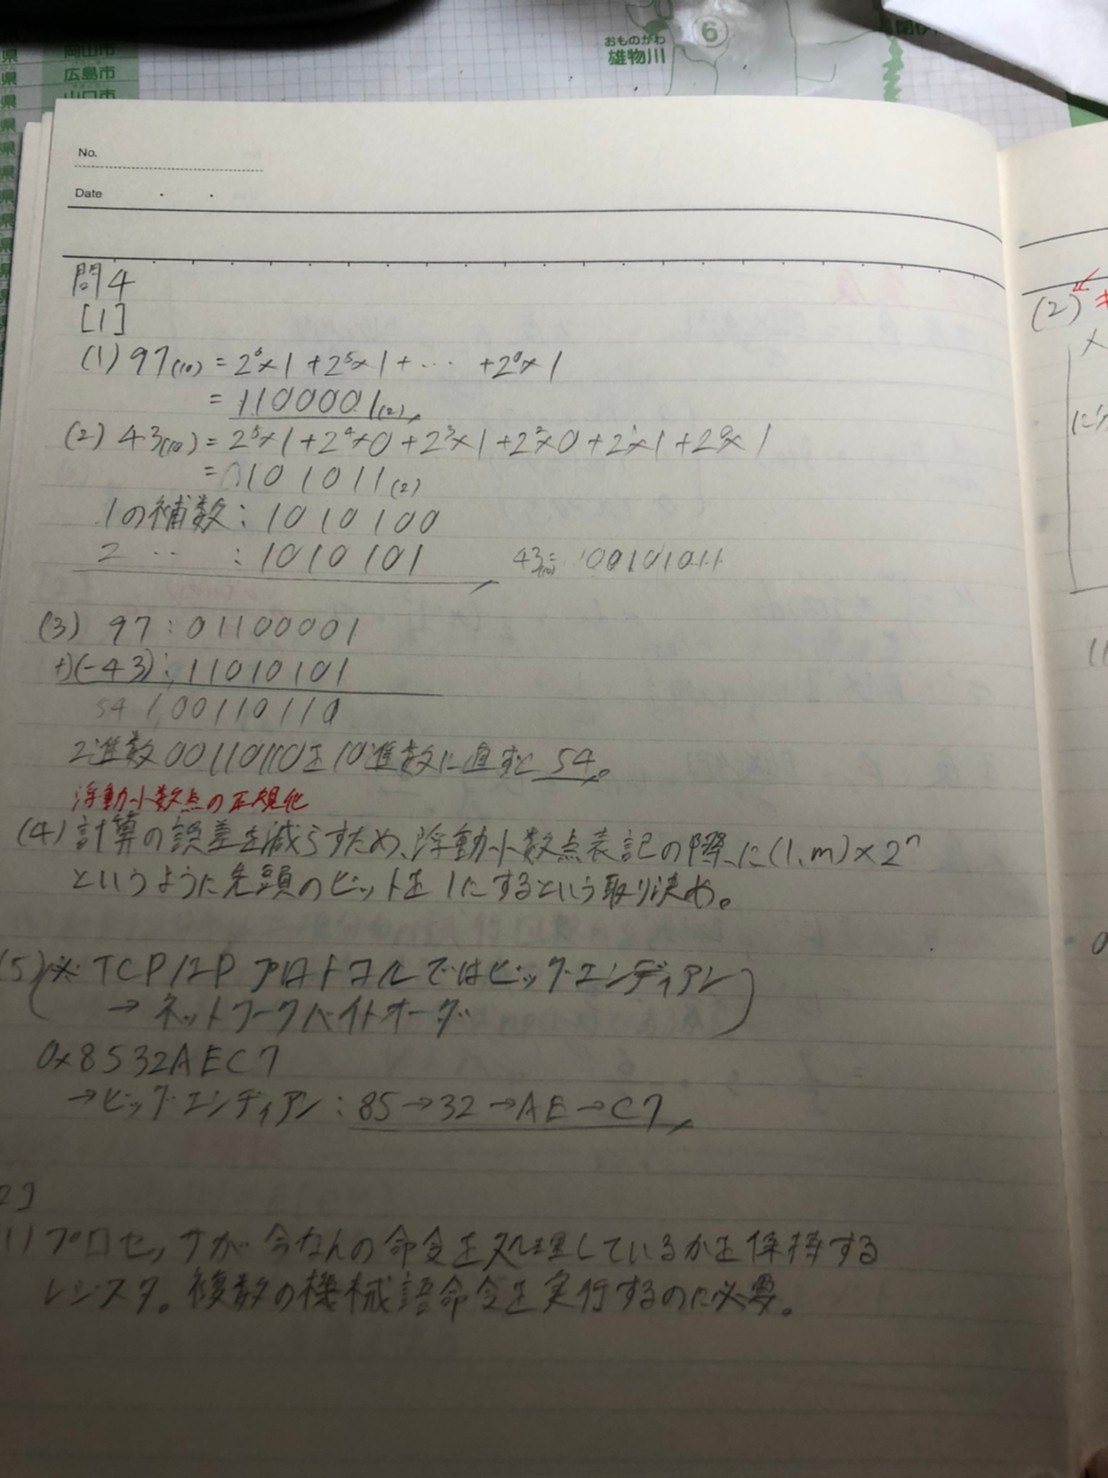 県
岡山市
県
広島市
県
山口市
おものがわ
雄物川
⑥
No.
Date
問4
[1]
(1) 97(10) = 2⁶×1 + 2⁵×1 + … + 2⁰×1
= 1100001(2)
(2) 43(10) = 2⁵×1 + 2⁴×0 + 2³×1 + 2²×0 + 2¹×1 + 2⁰×1
= 0101011(2)
1の補数: 1010100
2 ‥ : 1010101
43(10) = 00101011
(3) 97: 01100001
+)(-43): 11010101
54 1,00110110
2進数00110110を10進数に直すと 54。
浮動小数点の正規化
(4) 計算の誤差を減らすため、浮動小数点表記の際に(1,m)×2ⁿ
というように先頭のビットを1にするという取り決め。
(5) ※ TCP/IP プロトコルではビッグエンディアン
→ ネットワークバイトオーダ
0x8532AEC7
→ビッグエンディアン: 85→32→AE→C7
2]
(1) プロセッサが今なんの命令を処理しているかを保持する
レジスタ。複数の機械語命令を実行するのに必要。
(2)